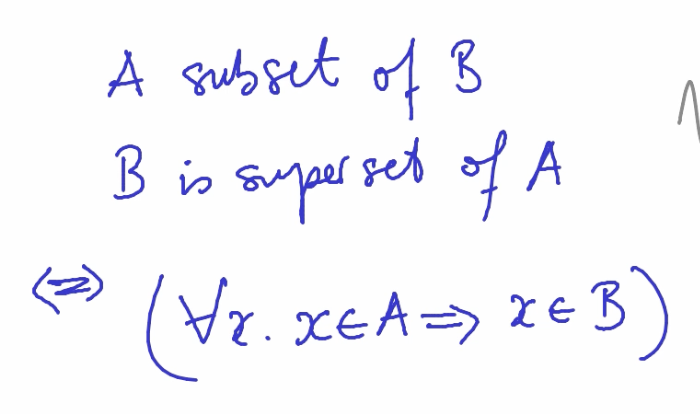 A subset of B
B is superset of A
⇔ (∀x. x∈A ⇒ x∈B)